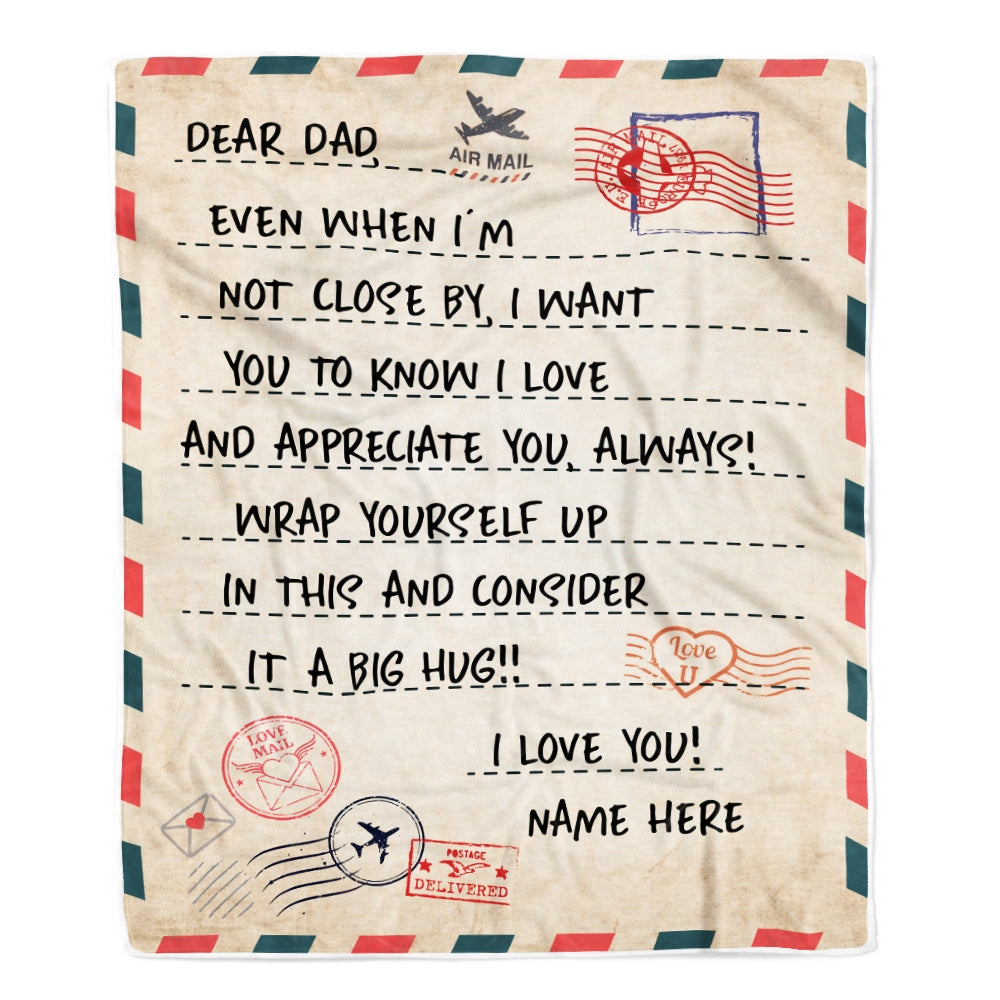 DEAR DAD,
AIR MAIL
EVEN WHEN I'M
NOT CLOSE BY, I WANT
YOU TO KNOW I LOVE
AND APPRECIATE YOU, ALWAYS!
WRAP YOURSELF UP
IN THIS AND CONSIDER
IT A BIG HUG!!
Love
U
LOVE
MAIL
I LOVE YOU!
NAME HERE
POSTAGE
DELIVERED